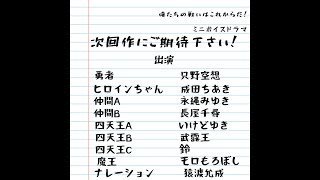 俺たちの戦いはこれからだ!
ミニボイスドラマ
次回作にご期待下さい!
出演
勇者 只野空想
ヒロインちゃん 成田ちあき
仲間A 永縄みゆき
仲間B 長屋千尋
四天王A いけどゆき
四天王B 武露王
四天王C 鈴
魔王 モロもろぼし
ナレーション 猿渡允成